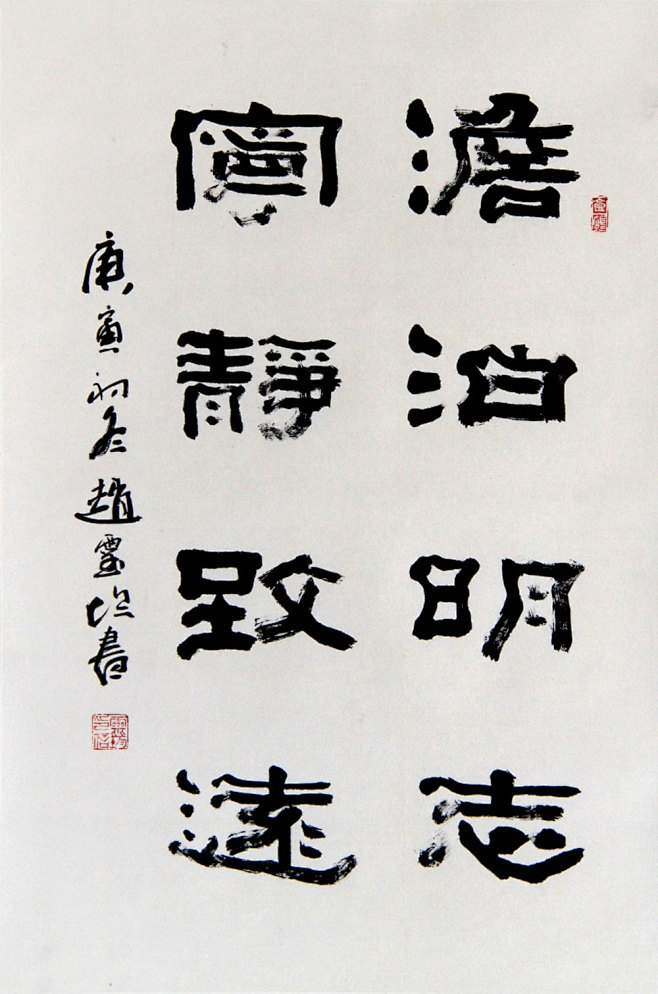 澹泊明志
寧靜致遠
庚寅初冬趙雲起書